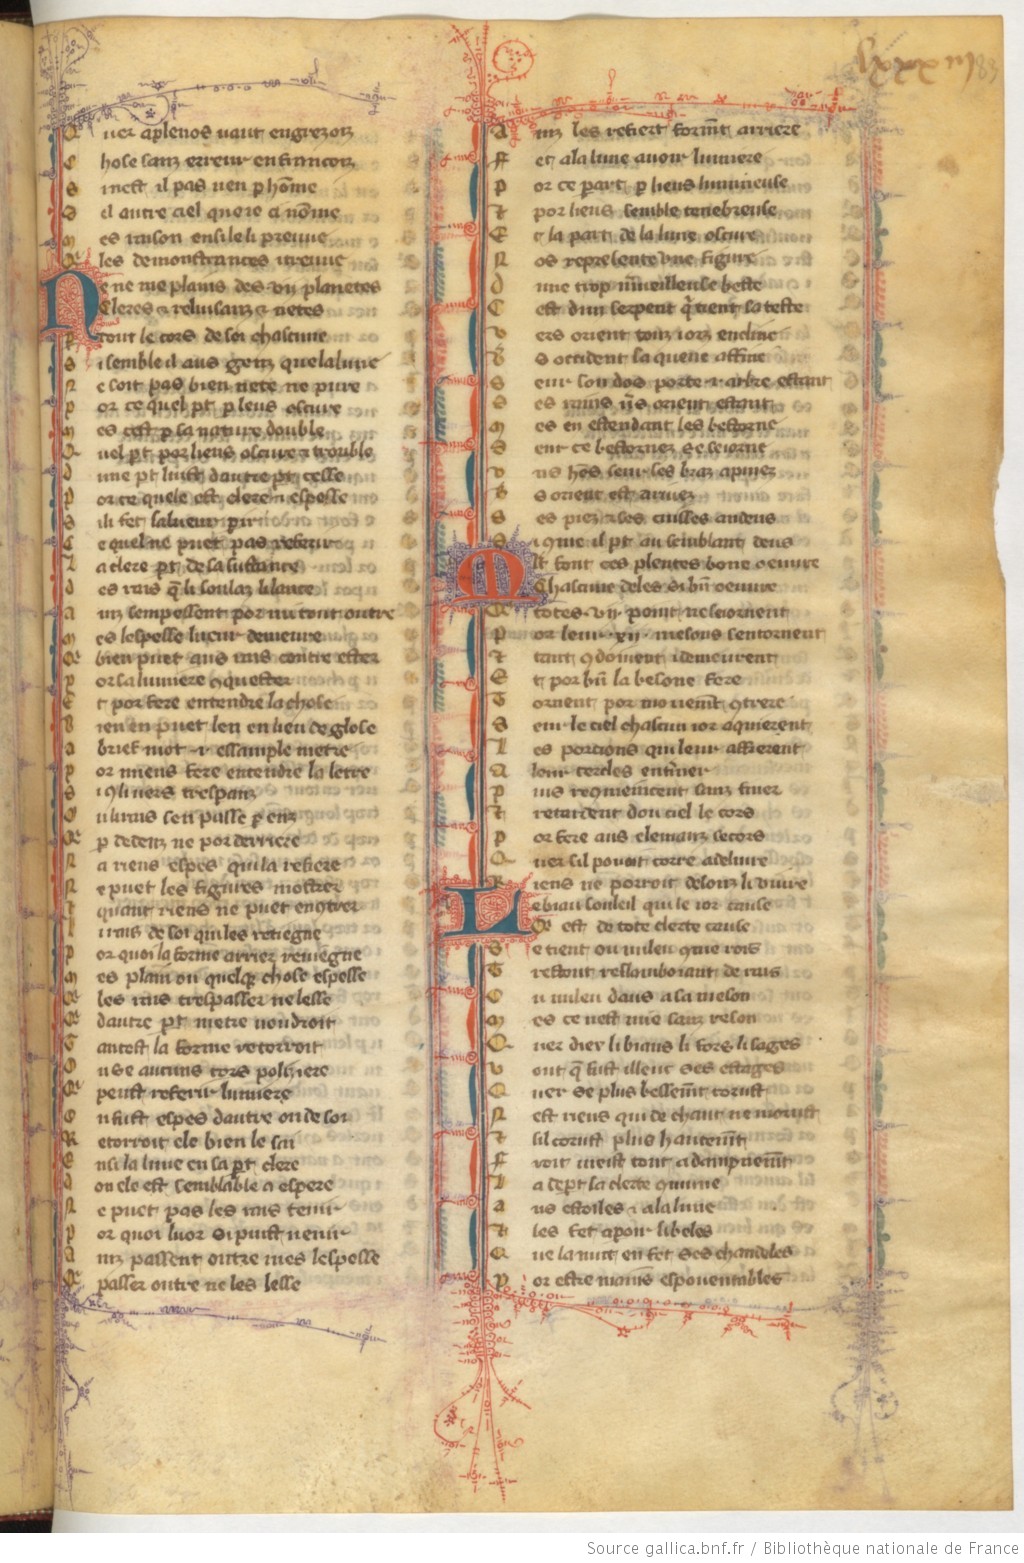 lxxxiij 83
Q uer aplenos uaut engrezois
C hose sanz erreur en francois
S i nest il pas uen p home
D el autre ciel quere a nome
M es raison ensileli preuue
Q les demonstrances i treuue
N e ne me plains des vij planetes
Cleres & reluisanz & netes
P tout le cors de soi chascune
S i semble il aus genz que la lune
N e soit pas bien nete ne pure
P or ce quel pt p leus oscure
M es cest p sa nature double
Q uel pt por lieus oscure & trouble
D une pt luist dautre pt cesse
P or ce quele est clere & espesse
S ili fet sa lueur pir
C e quel ne puet pas referir
L a clere pt de sa sustance
D es rais q li soulaz li lance
A inz sempessent por mi tout outre
M es lespesse lueur demeure
Q bien puet aus rais contre ester
P or sa lumiere conquester
E t por fere entendre la chose
B ien en puet len en lieu de glose
A brief mot & essample metre
P or miens fere entendre la letre
S i com li uers trespanz
O u li rais sen passe p enz
Q p dedenz ne por derriere
N a riens espes qui la refiere
N e puet les figures mostrer
T quant riens ne puet encontrer
L i rais de soi qui les retiegne
P or quoi la forme arriez reuiegne
M es plain ou quelque chose espesse
Q les rais trespasser ne lesse
Q dautre pt metre uoudroit
T antost la forme retorroit
O u se aucuns cors polis iere
Q peust referir lumiere
E n fust espes dautre ou de soi
R etorroit ele bien le sai
E nsi la lune en sa pt clere
D on ele est semblable a espere
N e puet pas les rais tenir
P or quoi luor si puist uenir
A inz passent outre mes lespesse
Q passer outre ne les lesse
A inz les refiert forment arriere
F et a la lune auoir lumiere
P or ce pert p lieus lumineuse
& por lieus semble tenebreuse
E t la part de la lune oscure
N os represente une figure
D une trop merueilleuse beste
C est dun serpent q tient sa teste
V ers orient touz iorz encline
V s occident sa queue affine
S eur son dos porte & arbre estant
S es rains uers orient estant
M es en estendant les bestorne
S eur ce bestornez se seiorne
V ns homs seur ses braz apuiez
V s orient est aruiez
S es piez & ses cuisses andeus
S i come il pt au semblant deus
M lt font ces planetes bone oeuure
Chascune deles si bien oeuure
Q totes vij point ne seiornent
P or leur xij mesons sentornent
& tant com doiuent i demeurent
E t por bien la besone fere
T ornent por mouuement contrere
S eur le ciel chascun ior aquierent
L es porcions qui leur affierent
A leur cercles enteriner
P uis recommencent sanz finer
& retardent dou ciel le cors
P or fere aus elemenz secors
Q uer sil pouoit corre a deliure
R iens ne porroit desouz li viure
L e biau souleil qui le ior cause
Q est de tote clerte cause
S e tient ou milieu come rois
T restout reflamboiant de rais
O u milieu daus a sa meson
M es ce nest mie sanz reson
Q uer dieu li biaus li fors li sages
V out q fust illeuc ses estages
Q uer se plus bassement corust
N est riens qui de chaut ne morust
& sil corust plus hautement
F roit meist tout a dampnement
L a depart sa clerte commune
A us estoiles & a la lune
& les fet aparoir si beles
Q ue la nuit en fet ses chandeles
P or estre moins espouentables
Source gallica.bnf.fr / Bibliothèque nationale de France